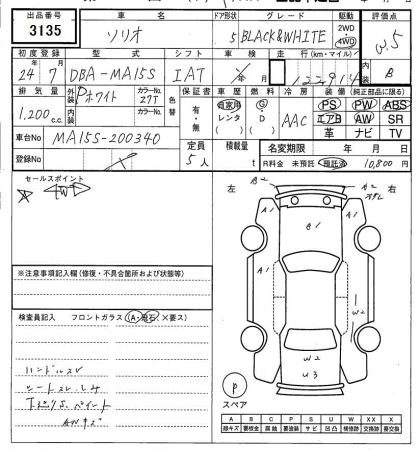 出品番号 車名 ドア形状 グレード 駆動 評価点
3135 ソリオ 5 BLACK&WHITE 2WD 4WD
初度登録 型式 シフト 車検 走行(km・マイル) 内装
24年 7月 DBA-MA15S IAT 122914 B
排気量 外装 Pホワイト カラーNo. Z7T 色替 保証書 車歴 燃料 冷房 装備(純正部品に限る)
1,200 c.c. 内装 カラーNo. 有・無 自家用 レンタ G D AAC PS PW ABS
エアB AW SR
革 ナビ TV
車台No MA15S-200340 定員 5人 積載量 t 名変期限 年 月 日
登録No R料金 未預託 預託済 10,800円
セールスポイント
4WD
左 右
A2 A1 A1 A1 A1
※注意事項記入欄(修復・不具合箇所および状態等)
検査員記入 フロントガラス(A・飛石・×要ス)
W2
W2
U3
ハンドルスレ
シートスレ、シミ
下廻りS、ペイント
AWキズ
P
スペア
A B C P S U W XX X
線キズ 要板金 腐蝕 要塗装 サビ 凹凸 補修跡 交換跡 要交換